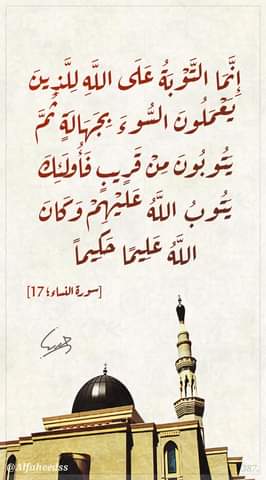 إِنَّمَا التَّوْبَةُ عَلَى اللَّهِ لِلَّذِينَ
يَعْمَلُونَ السُّوءَ بِجَهَالَةٍ ثُمَّ
يَتُوبُونَ مِنْ قَرِيبٍ فَأُولَئِكَ
يَتُوبُ اللَّهُ عَلَيْهِمْ وَكَانَ
اللَّهُ عَلِيمًا حَكِيماً
[سورة النساء؛ 17]
@Alfaheedss
387.